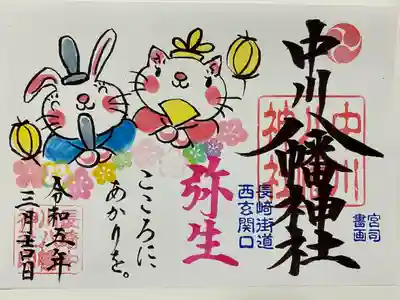 中川八幡神社
中川八幡神社
宮司
書画
長崎街道
西玄関口
弥生
こころに
あかりを。
令和五年
三月吉日